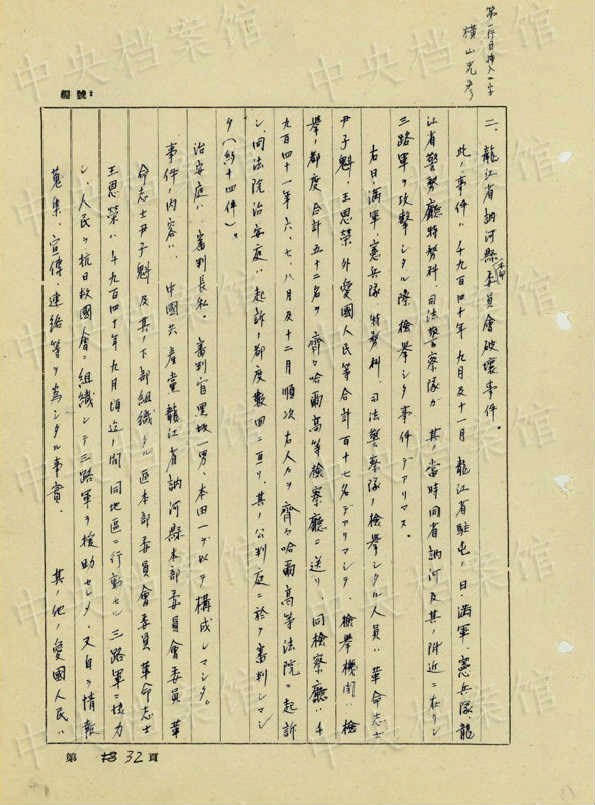 第一行目挿入一字
横山光彦
編號：
二、龍江省訥河縣本部委員會破壞事件。
此ノ事件ハ 千九百四十年 九月及十一月 龍江省駐屯ノ日・満軍、憲兵隊、龍
江省警務廳特務科、司法警察隊ガ 其ノ當時同省訥河及其ノ附近ニ在リシ
三路軍ヲ攻撃シタル際 檢擧シタ事件デアリマス。
右日・満軍、憲兵隊、特務科、司法警察隊ノ檢擧シタル人員ハ 革命志士
尹子魁、王恩榮 外愛國人民等合計百十七名デアリマシテ、檢擧機関ハ 檢
擧ノ都度 合計五十二名ヲ 齊々哈爾高等檢察廳ニ送リ、同檢察廳ハ 千
九百四十一年六、七、八月及十二月 順次右人々ヲ 齊々哈爾高等法院ニ起訴
シ、同法院治安庭ハ 起訴ノ都度數回ニ亘リ、其ノ公判庭ニ於テ審判シマシ
タ（約十四件）。
治安庭ハ 審判長私、審判官黒坂一男、本田一デ以テ構成シマシタ。
事件ノ内容ハ、中國共産黨龍江省訥河縣本部委員會委員 革
命志士尹子魁 及其ノ下部組織タル区本部委員會委員革命志士
王恩榮ハ 千九百四十年九月頃迄ノ間 同地區ニ行動セル三路軍ニ協力
シ、人民ヲ抗日救國會ニ組織シテ三路軍ヲ援助セシメ、又自ラ情報
蒐集、宣傳、連絡等ヲ為シタル事實、 其ノ他ノ愛國人民ハ
中央档案馆
第 32 頁